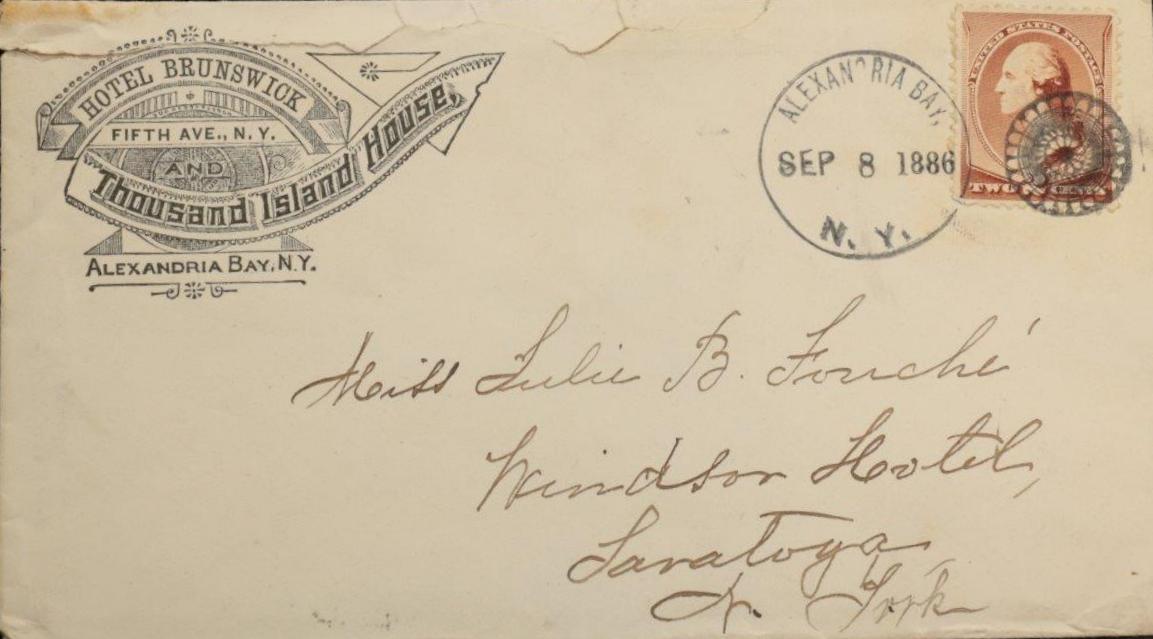 HOTEL BRUNSWICK
FIFTH AVE., N.Y.
AND
Thousand Island House,
ALEXANDRIA BAY, N.Y.
ALEXANDRIA BAY,
SEP 8 1886
N. Y.
UNITED STATES POSTAGE
TWO CENTS
Miss Julie B. Fouché
Windsor Hotel,
Saratoga
N. York